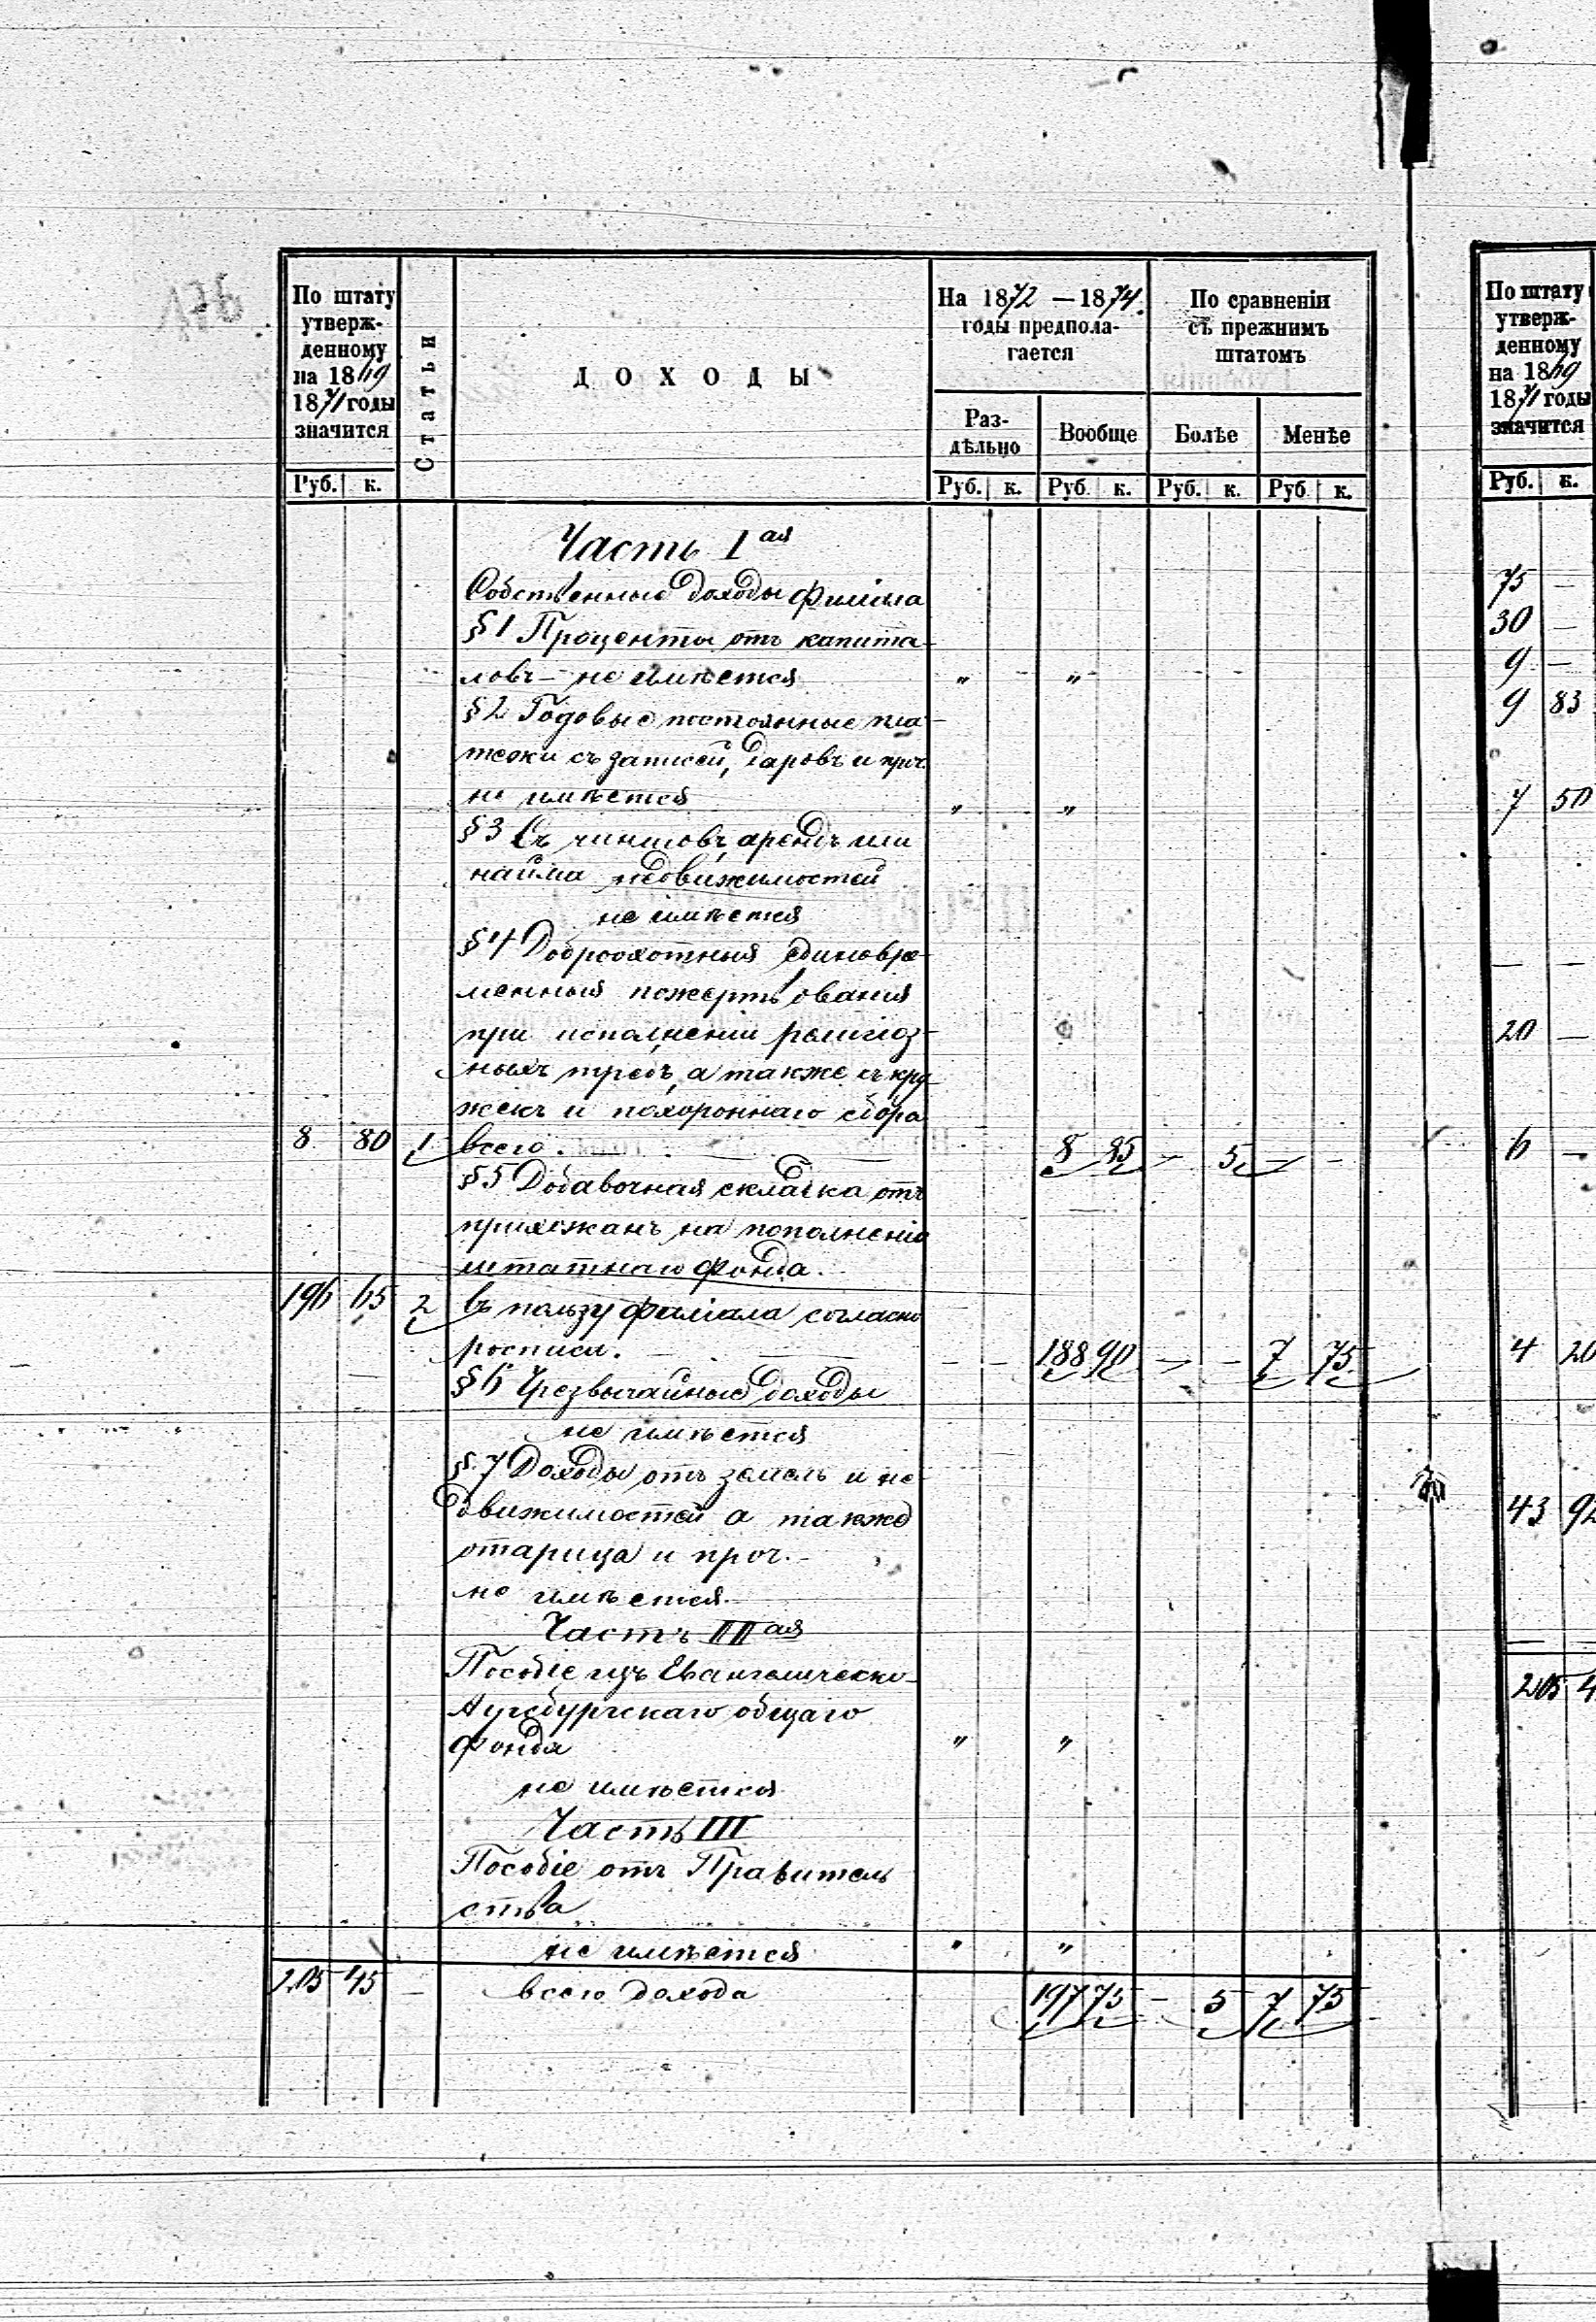 176
По штату
утверж-
денному
на 1869
1871 годы
значится
Руб. к.
Статьи
ДОХОДЫ
На 1872 — 1874.
годы предпола-
гается
Раз-
дѣльно
Вообще
По сравненiи
съ прежнимъ
штатомъ
Болѣе
Менѣе
Руб. к. Руб к. Руб. к. Руб к.
Часть Iая
Собственные доходы филiала
§1 Проценты отъ капита-
ловъ — не имѣется " "
§2 Годовые постоянные пла-
тежи съ записей, даровъ и проч.
не имѣется " "
§3 Съ чиншовъ, арендъ или
найма недвижимостей
не имѣется
§4 Доброохотныя единовре-
менныя пожертвованiя
при исполненiи религiоз-
ныхъ требъ, а также съ кру-
жекъ и похороннаго сбора
8 80 1 всего. 8 85 — 5 — —
§5 Добавочная складка отъ
прихожанъ на пополненiе
штатнаго фонда.
196 65 2 въ пользу филiала согласно
росписи. — — 188 90 — — 7 75
§6 Чрезвычайные доходы
не имѣется
§7 Доходы отъ земель и не-
движимостей а также
отарица и проч. —
не имѣется.
Часть IIая
Пособiе изъ Евангелическо-
Аугсбургскаго общаго
фонда " "
не имѣется
Часть III
Пособiе отъ Правитель
ства
не имѣется " "
205 45 — всего дохода 197 75 — 5 7 75
По штату
утверж-
денному
на 1869
1871 годы
значится
Руб. к.
75 —
30 —
9 —
9 83
7 50
— —
20 —
6 —
4 20
43 92
205 4